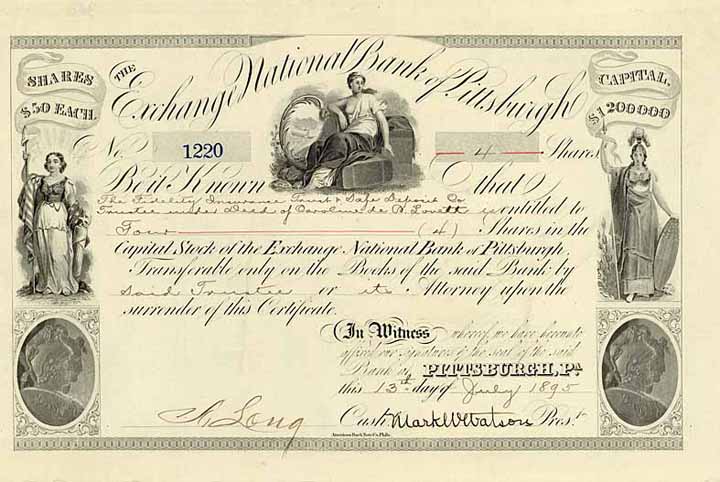 SHARES
$50 EACH.
THE
Exchange National Bank of Pittsburgh
CAPITAL.
$1200000
No. 1220
4 Shares
Be it Known that
The Fidelity Insurance Trust & Safe Deposit Co
Trustee under Deed of Caroline de B. Lovett is entitled to
Four (4) Shares in the
Capital Stock of the Exchange National Bank of Pittsburgh.
Transferable only on the Books of the said Bank by
said Trustee or its Attorney upon the
surrender of this Certificate.
In Witness whereof, we have hereunto
affixed our signatures & the seal of the said
Bank at PITTSBURGH, PA
this 13th day of July 1895
A. Long Cash. Mark W. Watson Pres.t
American Bank Note Co. Phila.